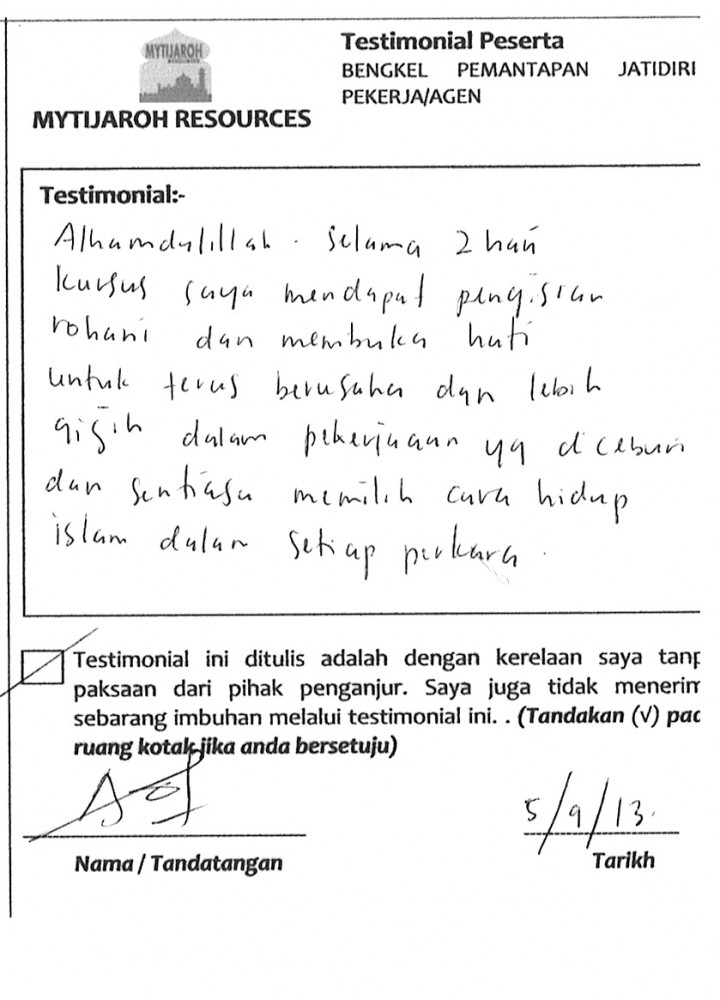 MYTIJAROH
RESOURCES
MYTIJAROH RESOURCES
Testimonial Peserta
BENGKEL PEMANTAPAN JATIDIRI
PEKERJA/AGEN
Testimonial:-
Alhamdulillah. Selama 2 hari
kursus saya mendapat pengisian
rohani dan membuka hati
untuk terus berusaha dan lebih
gigih dalam pekerjaan yg diceburi
dan sentiasa memilih cara hidup
islam dalam setiap perkara.
Testimonial ini ditulis adalah dengan kerelaan saya tanp
paksaan dari pihak penganjur. Saya juga tidak menerim
sebarang imbuhan melalui testimonial ini. . (Tandakan (√) pad
ruang kotak jika anda bersetuju)
5/9/13.
Nama / Tandatangan
Tarikh